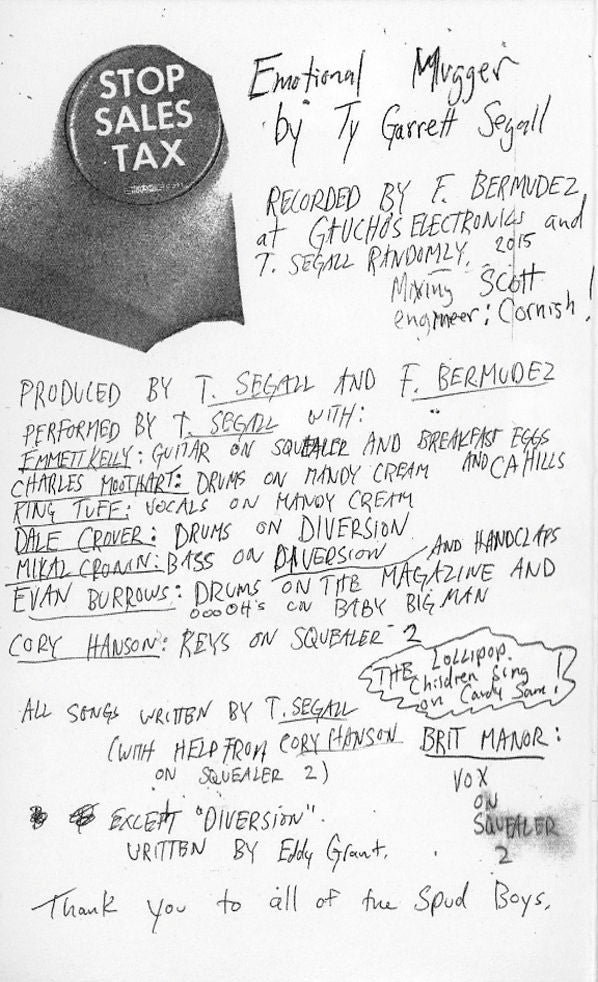 STOP
SALES
TAX
Emotional Mugger
by Ty Garrett Segall
RECORDED BY F. BERMUDEZ
at GAUCHO'S ELECTRONICS and
T. SEGALL RANDOMLY. 2015
Mixing Scott
engineer: Cornish!
PRODUCED BY T. SEGALL AND F. BERMUDEZ
PERFORMED BY T. SEGALL WITH:
EMMETT KELLY: GUITAR ON SQUEALER AND BREAKFAST EGGS
CHARLES MOOTHART: DRUMS ON MANDY CREAM AND CA HILLS
KING TUFF: VOCALS ON MANDY CREAM
DALE CROVER: DRUMS ON DIVERSION
MIKAL CRONIN: BASS ON DIVERSION AND HANDCLAPS
EVAN BURROWS: DRUMS ON THE MAGAZINE AND
OOOOH'S ON BABY BIG MAN
CORY HANSON: KEYS ON SQUEALER 2
THE LOLLIPOP
Children Sing
on Candy Sam!
ALL SONGS WRITTEN BY T. SEGALL
(WITH HELP FROM CORY HANSON
ON SQUEALER 2)
BRIT MANOR:
VOX
ON
SQUEALER
2
EXCEPT "DIVERSION".
WRITTEN BY Eddy Grant.
Thank you to all of the Spud Boys.